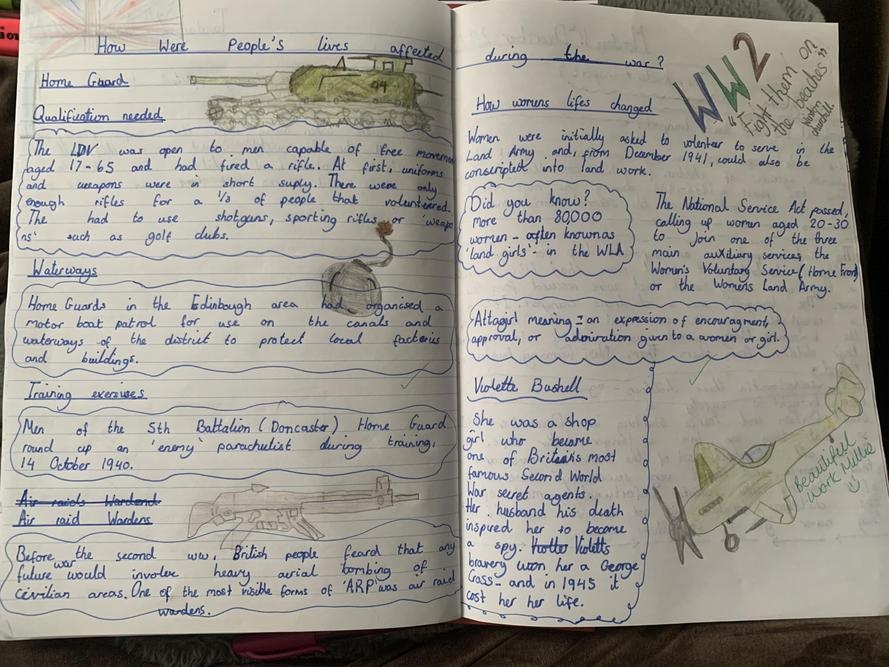 How Were People's lives affected
Home Guard
44
Qualification needed
The LDV was open to men capable of free movemen
aged 17-65 and had fired a rifle. At first, uniforms
and weapons were in short suply. There were only
enough rifles for a 1/3 of people that volunteered.
The had to use shotguns, sporting rifles or 'weapo
ns' such as golf clubs.
Waterways
Home Guards in the Edinbough area had organised a
motor boat patrol for use on the canals and
waterways of the district to protect local factories
and buildings.
Training exercises
Men of the 5th Battalion (Doncaster) Home Guard
round up an 'enemy' parachutist during training,
14 October 1940.
Air raids Wardend
Air raid Wardens
Before the second ww, British people feard that any
future war would involve heavy aerial bombing of
civilian areas. One of the most visible forms of 'ARP' was air raid
wardens.
during the war?
WW2
"Fight them on
the beaches"
Winston
churchill
How womens lifes changed
Women were initially asked to volenter to serve in the
Land Army and, from December 1941, could also be
conscripted into land work.
Did you know?
more than 80,000
women - often known as
'land girls' - in the WLA
The National Service Act passed,
calling up women aged 20-30
to join one of the three
main auxiliary services, the
Women's Voluntary Service (Home Front)
or the Womens Land Army.
Attagirl meaning = an expression of encouragment,
approval, or admiration given to a women or girl.
Violette Bushell
She was a shop
girl who became
one of Britains most
famous Second World
War secret agents.
Her husband his death
inspired her to become
a spy. Violetts
bravery won her a George
Cross - and in 1945 it
cost her her life.
Beautiful
work Millie